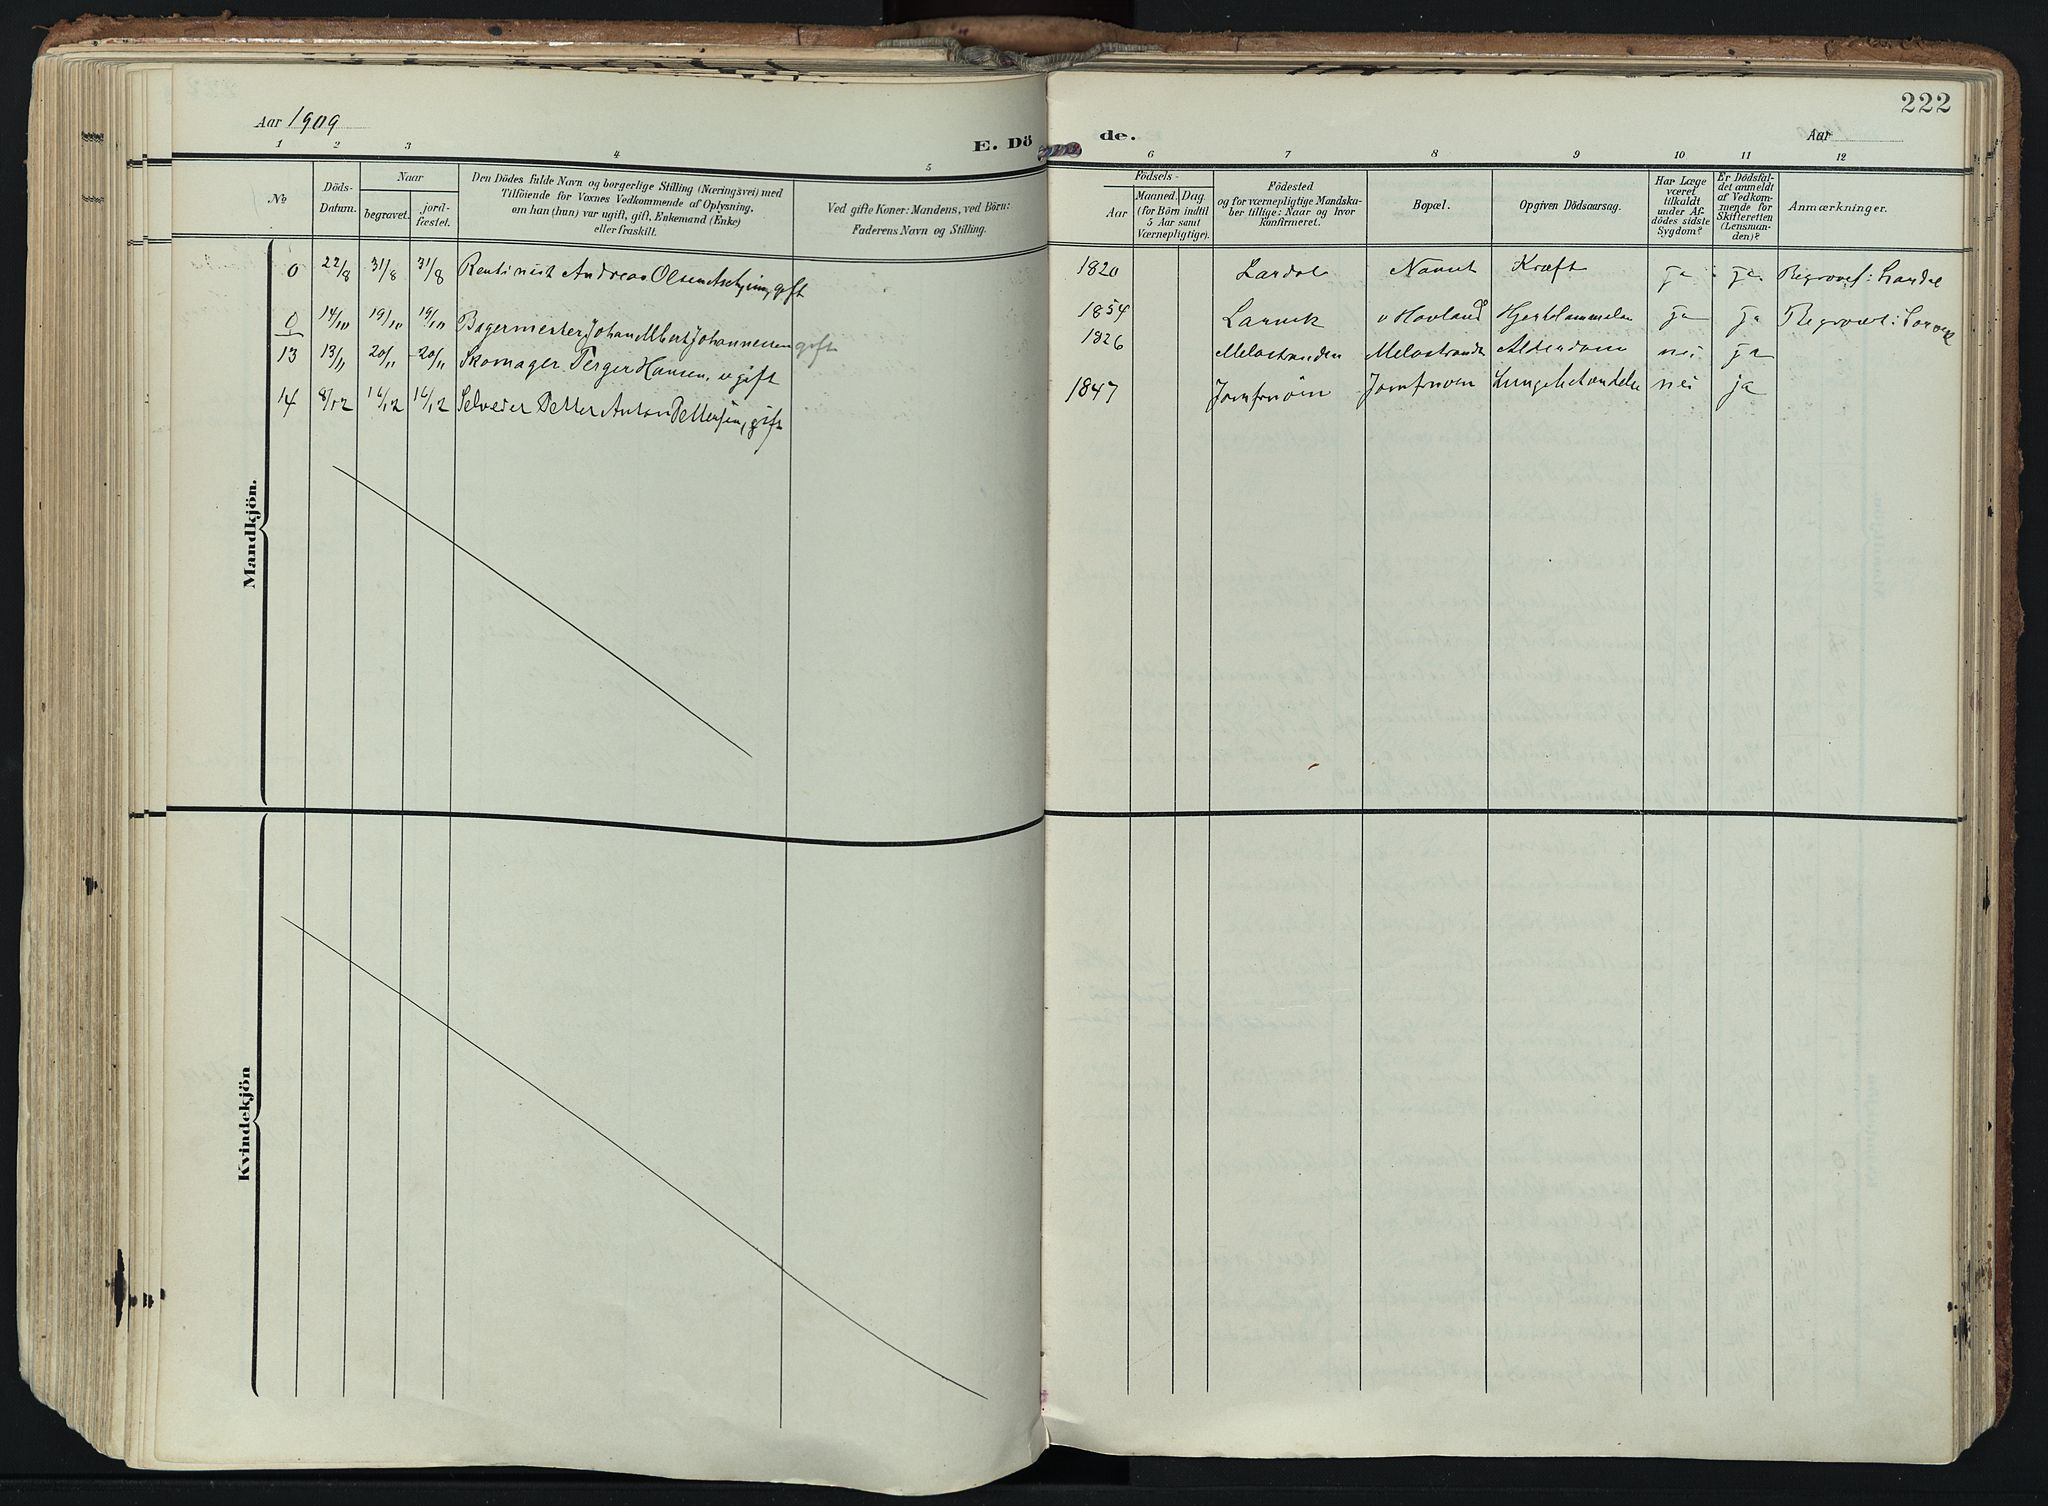 222
Aar 1909
E. Dö de.
Aar
1 2 3 4 5 6 7 8 9 10 11 12
No
Döds-
Datum.
Naar
begravet.
jord-
fæstet.
Den Dödes fulde Navn og borgerlige Stilling (Næringsvei) med
Tilföiende for Voxnes Vedkommende af Oplysning,
om han (hun) var ugift, gift, Enkemand (Enke)
eller fraskilt.
Ved gifte Koner: Mandens, ved Börn:
Faderens Navn og Stilling.
Födsels-
Aar
Maaned. Dag.
(for Börn indtil
5 Aar samt
Værnepligtige).
Födested
og for værnepligtige Mandska-
ber tillige: Naar og hvor
konfirmeret.
Bopæl.
Opgiven Dödsaarsag.
Har Læge
været
tilkaldt
under Af-
dödes sidste
Sygdom?
Er Dödsfal-
det anmeldt
af Vedkom-
mende for
Skifteretten
(Lensman-
den)?
Anmærkninger.
Mandkjön.
0 22/8 31/8 31/8 Rentinist Andreas Olsen gift 1820 Lardal Kræft ja ja
0 14/10 19/10 19/10 Bagermester Johan Albert Johannessen gift 1854 Larvik v Hovland ja ja Begravet i Larvik
13 13/11 20/11 20/11 Skomager Terger Hansen, ugift 1826 Melostranden Melostranden Alderdom nei ja
14 8/12 16/12 16/12 Selveder Petter Anton Pettersen, gift 1847 Jomfruöen Lungebetændelse nei ja
Kvindekjön